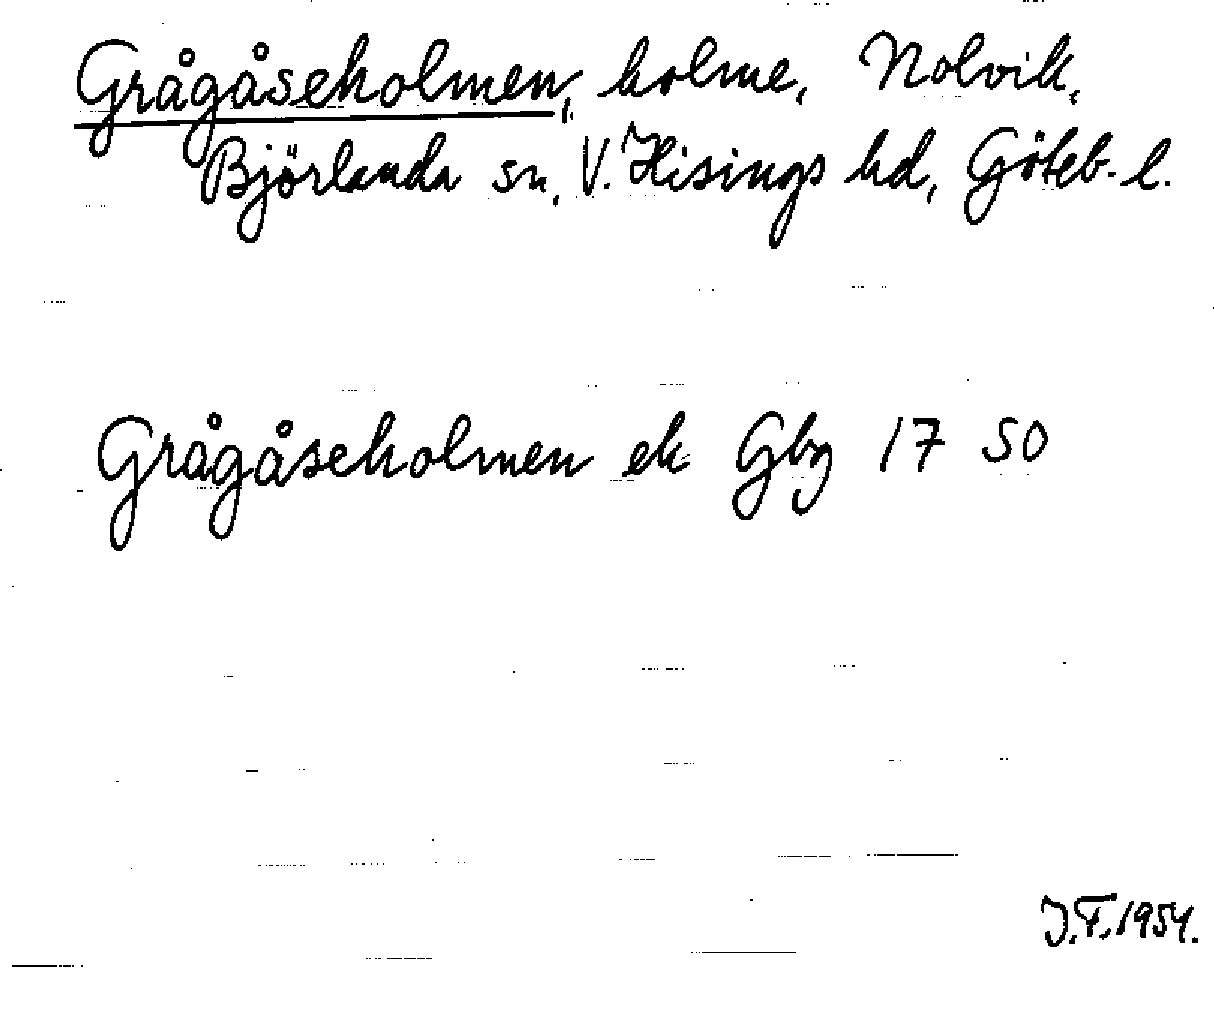 Grågåseholmen, holme, Nolvik,
Björlanda sn, V. Hisings hd, Göteb. l.
Grågåseholmen ek Gbg 17 50
J.F. 1954.